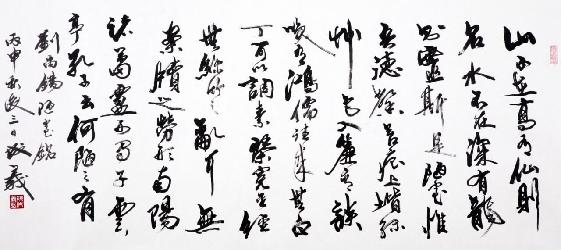 山不在高有仙則
名水不在深有龍
則靈斯是陋室惟
吾德馨苔痕上階綠
草色入簾青談
笑有鴻儒往來無白
丁可以調素琴閱金經
無絲竹之亂耳無
案牘之勞形南陽
諸葛廬西蜀子雲
亭孔子云何陋之有
劉禹錫陋室銘
丙申三日